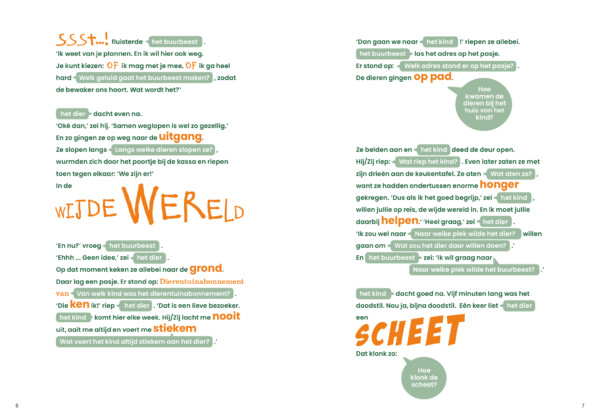 SSSt...! fluisterde het buurbeest .
'Ik weet van je plannen. En ik wil hier ook weg.
Je kunt kiezen: OF ik mag met je mee, OF ik ga heel
hard Welk geluid gaat het buurbeest maken? , zodat
de bewaker ons hoort. Wat wordt het?'
het dier dacht even na.
'Oké dan,' zei hij. 'Samen weglopen is wel zo gezellig.'
En zo gingen ze op weg naar de uitgang.
Ze slopen langs Langs welke dieren slopen ze? ,
wurmden zich door het poortje bij de kassa en riepen
toen tegen elkaar: 'We zijn er!'
In de
WIJDE WERELD
'En nu?' vroeg het buurbeest .
'Ehhh ... Geen idee,' zei het dier .
Op dat moment keken ze allebei naar de grond.
Daar lag een pasje. Er stond op: Dierentuinabonnement
van Van welk kind was het dierentuinabonnement? .
'Die ken ik!' riep het dier . 'Dat is een lieve bezoeker.
het kind komt hier elke week. Hij/Zij lacht me nooit
uit, aait me altijd en voert me stiekem
Wat voert het kind altijd stiekem aan het dier? .'
6
'Dan gaan we naar het kind !' riepen ze allebei.
het buurbeest las het adres op het pasje.
Er stond op: Welk adres stond er op het pasje? .
De dieren gingen op pad.
Hoe
kwamen de
dieren bij het
huis van het
kind?
Ze belden aan en het kind deed de deur open.
Hij/Zij riep: Wat riep het kind? . Even later zaten ze met
zijn drieën aan de keukentafel. Ze aten Wat aten ze? ,
want ze hadden ondertussen enorme honger
gekregen. 'Dus als ik het goed begrijp,' zei het kind ,
willen jullie op reis, de wijde wereld in. En ik moet jullie
daarbij helpen.' 'Heel graag,' zei het dier .
'Ik zou wel naar Naar welke plek wilde het dier? willen
gaan om Wat zou het dier daar willen doen? .'
En het buurbeest zei: 'Ik wil graag naar
Naar welke plek wilde het buurbeest? .'
het kind dacht goed na. Vijf minuten lang was het
doodstil. Nou ja, bijna doodstil. Eén keer liet het dier
een
SCHEET
Dat klonk zo:
Hoe
klonk de
scheet?
7